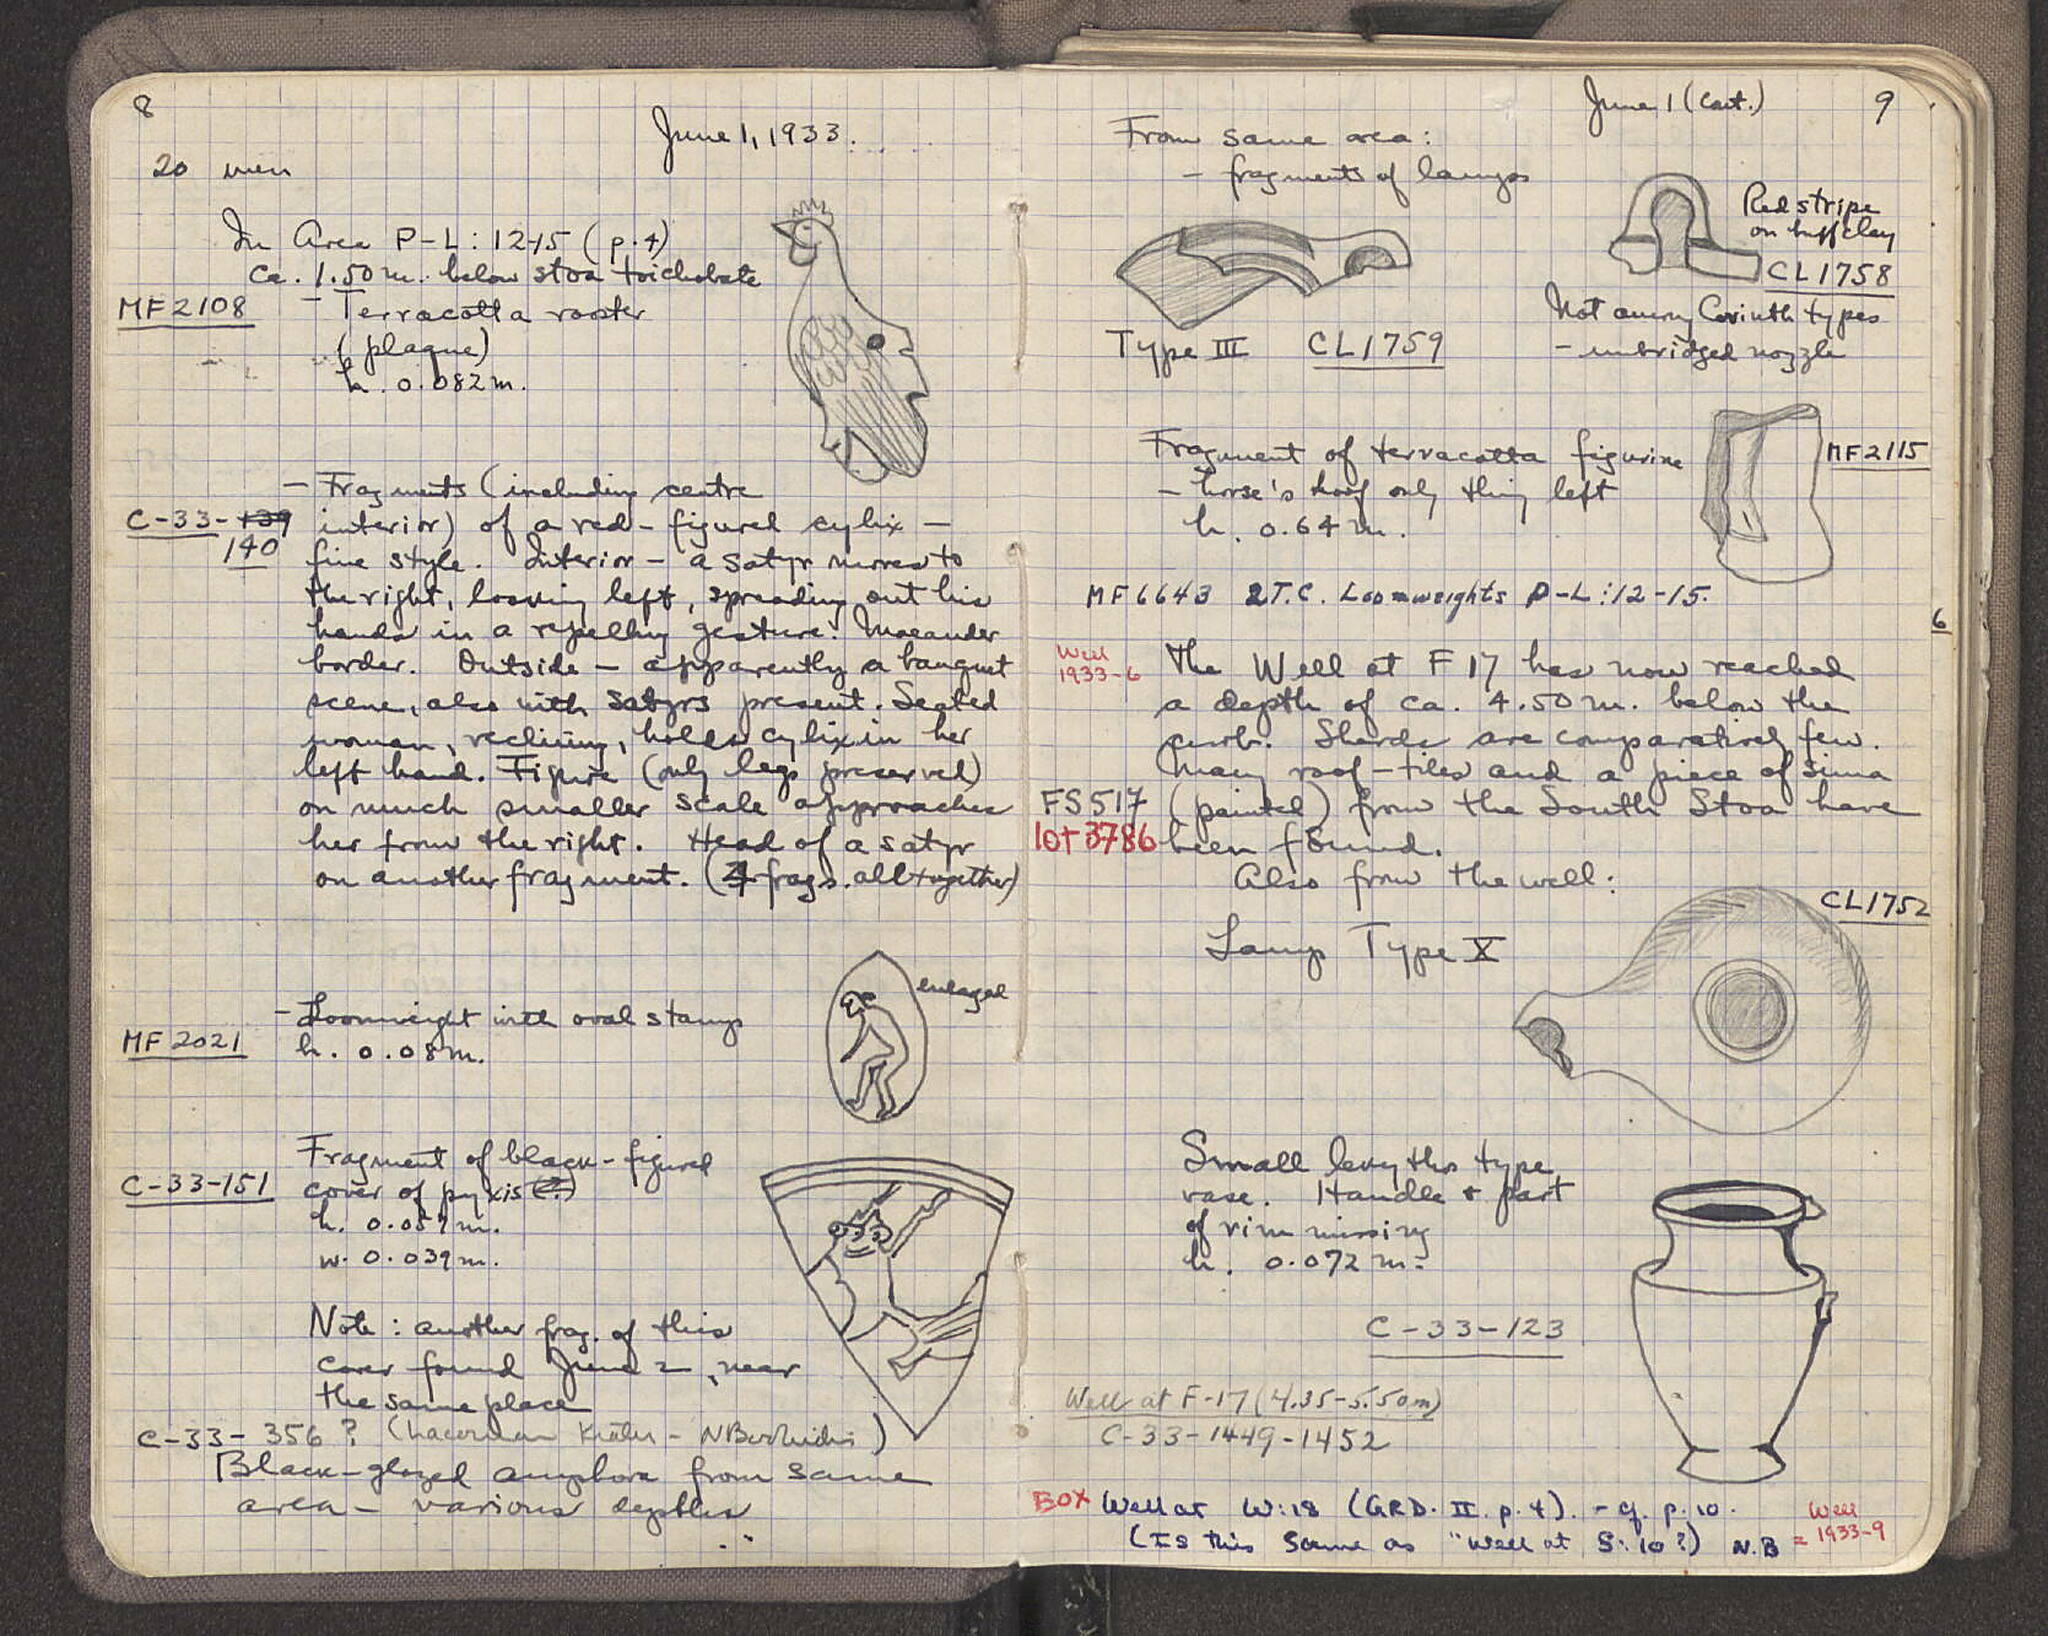 8
June 1, 1933.
20 men
In Area P-L: 12-15 (p. 4)
ca. 1.50 m. below stoa toichobate
MF 2108 - Terracotta rooster
(plaque)
h. 0.082 m.
- Fragments (including centre
C-33-139 interior) of a red-figured cylix -
140 fine style. Interior - a satyr moves to
the right, looking left, spreading out his
hands in a repelling gesture. Maeander
border. Outside - apparently a banquet
scene, also with satyrs present. Seated
woman, reclining, holds cylix in her
left hand. Figure (only legs preserved)
on much smaller scale approaches
her from the right. Head of a satyr
on another fragment. (4 frags. all together)
enlarged
- Loomweight with oval stamp
MF 2021 h. 0.08 m.
Fragment of black-figured
C-33-151 cover of pyxis (?)
h. 0.057 m.
w. 0.039 m.
Note: another frag. of this
cover found June 2, near
the same place
C-33-356? (Laconian Krater -
Black-glazed amphora from same
area - various depths
June 1 (Cont.) 9
From same area:
- fragments of lamps
Red stripe
on buff clay
CL 1758
Type III CL 1759
Not among Corinth types
- unbridged nozzle
Fragment of terracotta figurine MF 2115
- horse's hoof only thing left
h. 0.64 m.
MF 6643 2 T.C. Loomweights P-L: 12-15.
6
Well
1933-6
The Well at F 17 has now reached
a depth of ca. 4.50 m. below the
curb. Sherds are comparatively few.
Many roof-tiles and a piece of sima
FS 517 (painted) from the South Stoa have
lot 3786 been found.
Also from the well:
CL 1752
Lamp Type X
Small lekythos type
vase. Handle + part
of rim missing
h. 0.072 m.
C-33-123
Well at F-17 (4.35-5.50m)
C-33-1449-1452
BOX Well at W:18 (GRD. II. p. 4). - cf. p. 10.
(Is this same as "Well at S:10?) N.B = Well 1933-9